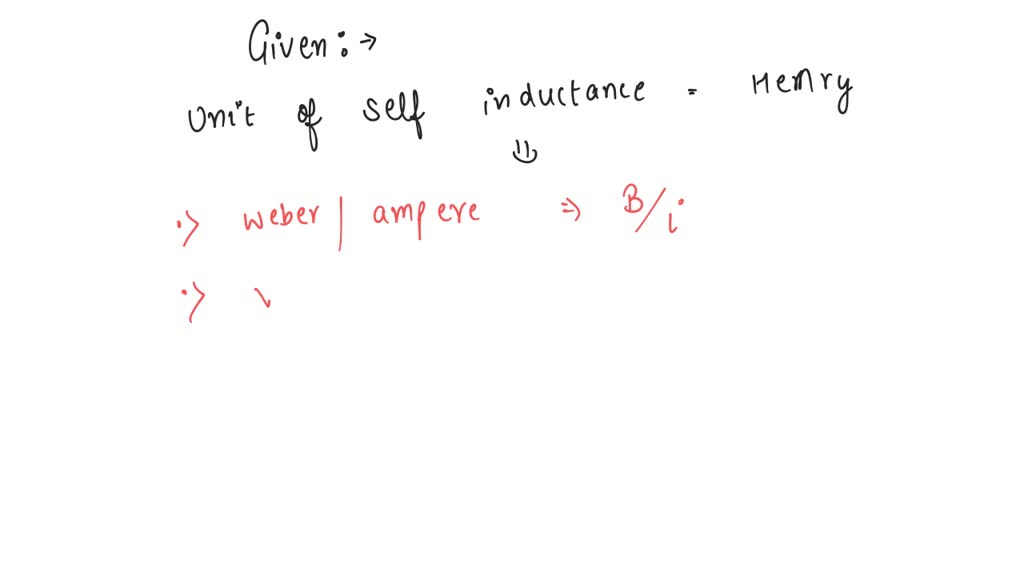 Given :→
Unit of self inductance = Henry
⇓
∴> weber | ampere => B/i
∴>